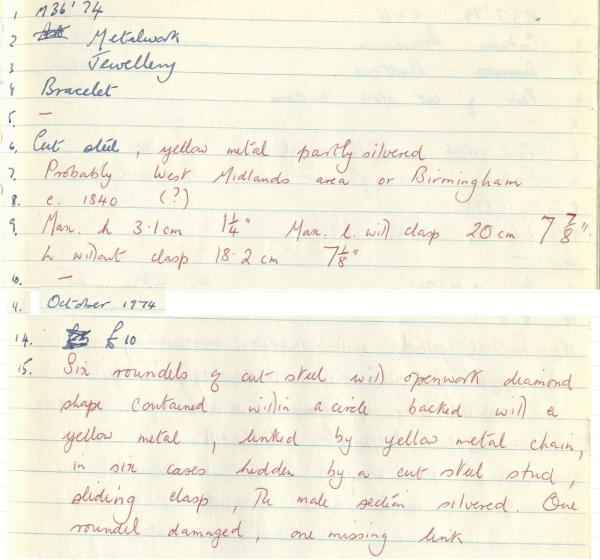 1 M36'74
2 Metalwork
3 Jewellery
4 Bracelet
5. —
6. Cut steel, yellow metal partly silvered
7. Probably West Midlands area or Birmingham
8. c. 1840 (?)
9. Max. h 3·1cm 1¼" Max. l. with clasp 20cm 7⅞".
h without clasp 18·2 cm 7⅛"
10. —
11. October 1974
14. £10
15. Six roundels of cut steel with openwork diamond
shape contained within a circle, backed with a
yellow metal, linked by yellow metal chain,
in six cases hidden by a cut steel stud,
sliding clasp, the male section silvered. One
roundel damaged, one missing link